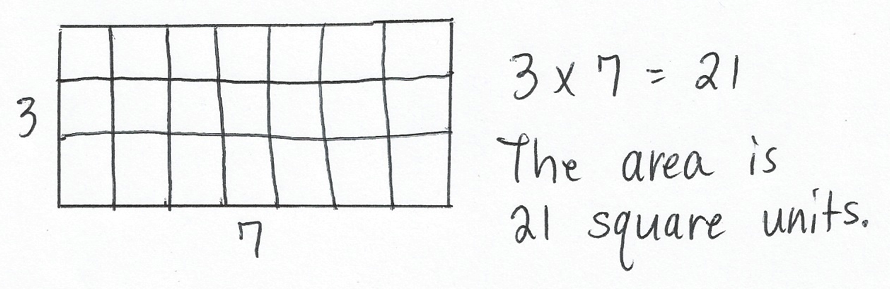 3
7
3 x 7 = 21
The area is
21 square units.